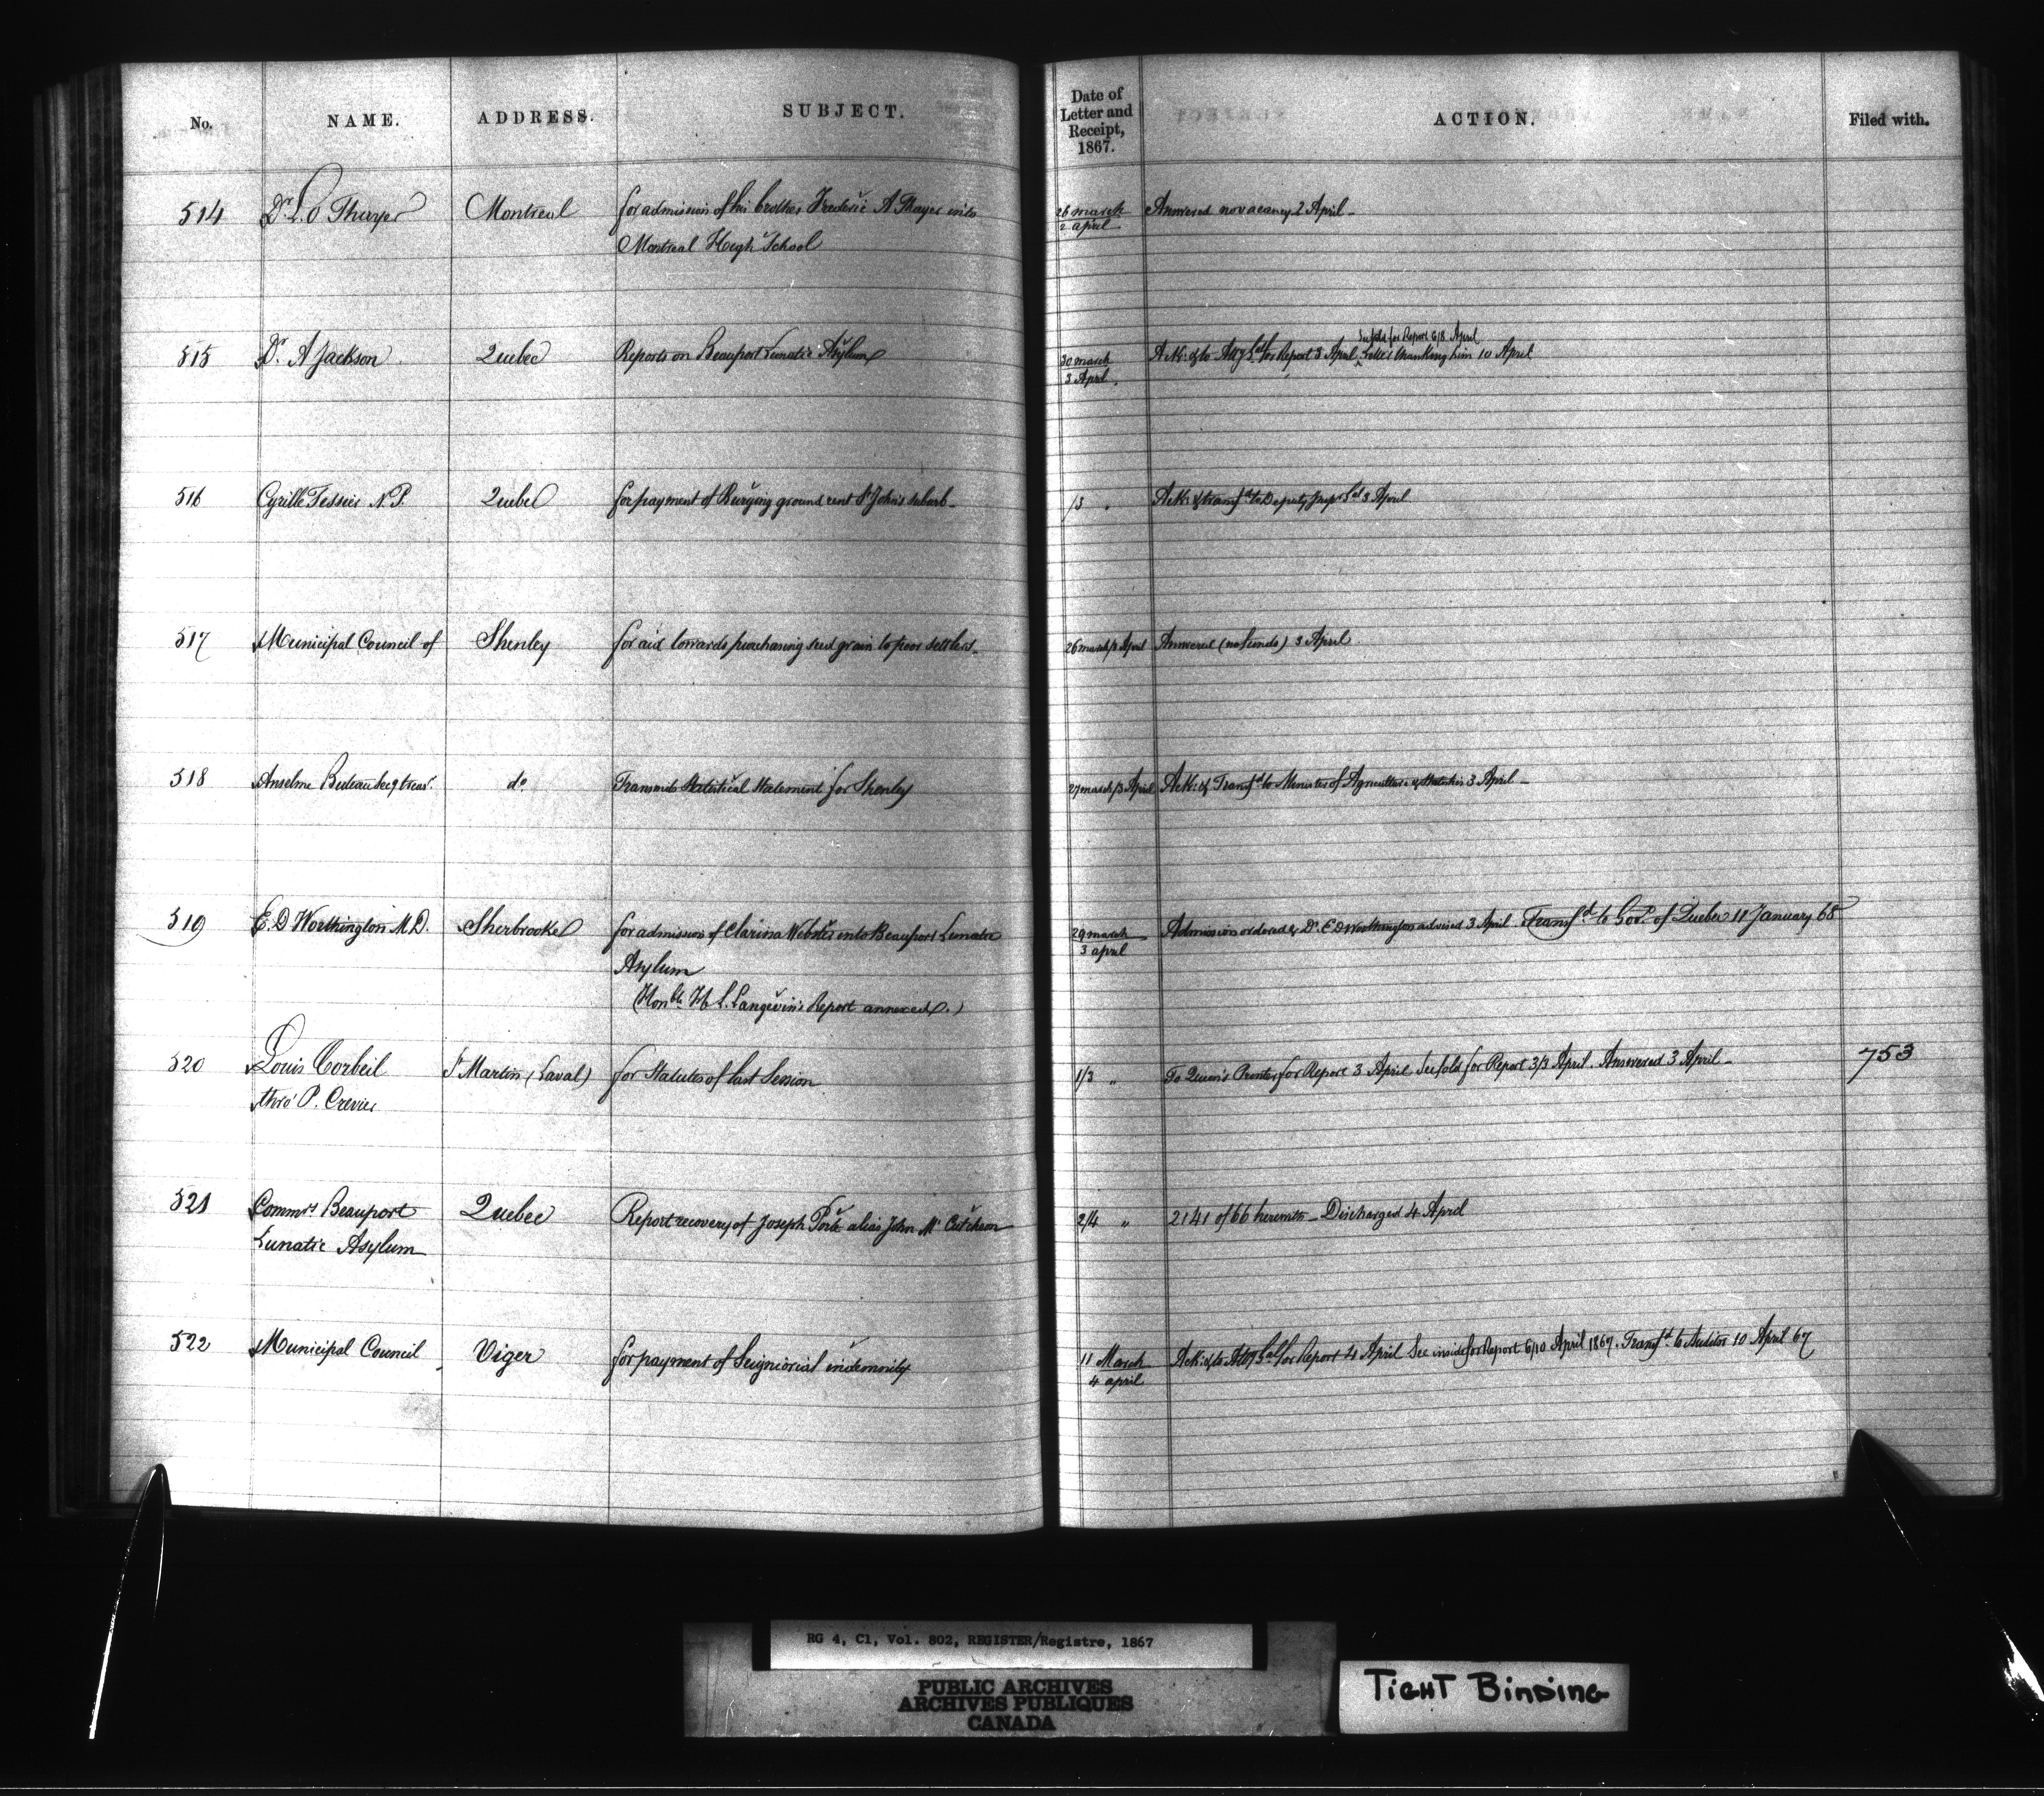 No. NAME. ADDRESS. SUBJECT. Date of Letter and Receipt, 1867. ACTION. Filed with.
514 Dr. L. O Thayer Montreal for admission of his brother Frederic A Thayer into 26 march Answered no vacancy 2 April _
Montreal High School 2 april
See fold for Report 6/8 April
515 Dr. A Jackson Quebec Reports on Beauport Lunatic Asylum 30 march Ack: & to Atty Gal for Report 3 April, Letter thanking him 10 April
3 April.
516 Cyrille Tessier N.P. Quebec for payment of Burying ground rent St John's suburb _ /3 " Ack: & transfd to Deputy 3 April
517 Municipal Council of Shenley for aid towards purchasing seed grain to poor settlers _ 26 march/3 April Answered (no funds) 3 April
518 Anselme secy treasr. do Transmits Statistical Statement for Shenley 27 march/3 April Ack: & Transfd to Minister of Agriculture & Statistics 3 April _
519 E. D Worthington M.D. Sherbrooke for admission of Clarina Webster into Beauport Lunatic 29 march Admission ordered & Dr. E D Worthington advised 3 April. Transfd to Govt. of Quebec 11 January 68
Asylum 3 april
(Honble H. L. Langevin's Report annexed.)
520 Louis Corbeil St Martin (Laval) for Statutes of last Session 1/3 " To Queen's Printer for Report 3 April See fold for Report 3/3 April. Answered 3 April _ 753
thro' P. Crevier
521 Commrs Beauport Quebec Report recovery of Joseph Pork alias John Mc Cutcheon 2/4 " 2141 of 66 herewith _ Discharged 4 April
Lunatic Asylum
522 Municipal Council Viger for payment of Seigniorial indemnity 11 March Ack: & to Atty Gal for Report 4 April See inside for Report 6/10 April 1867. Transfd. to Auditor 10 April 67
4 april
RG 4, C1, Vol. 802, REGISTER/Registre, 1867
PUBLIC ARCHIVES
ARCHIVES PUBLIQUES
CANADA
TIGHT BINDING